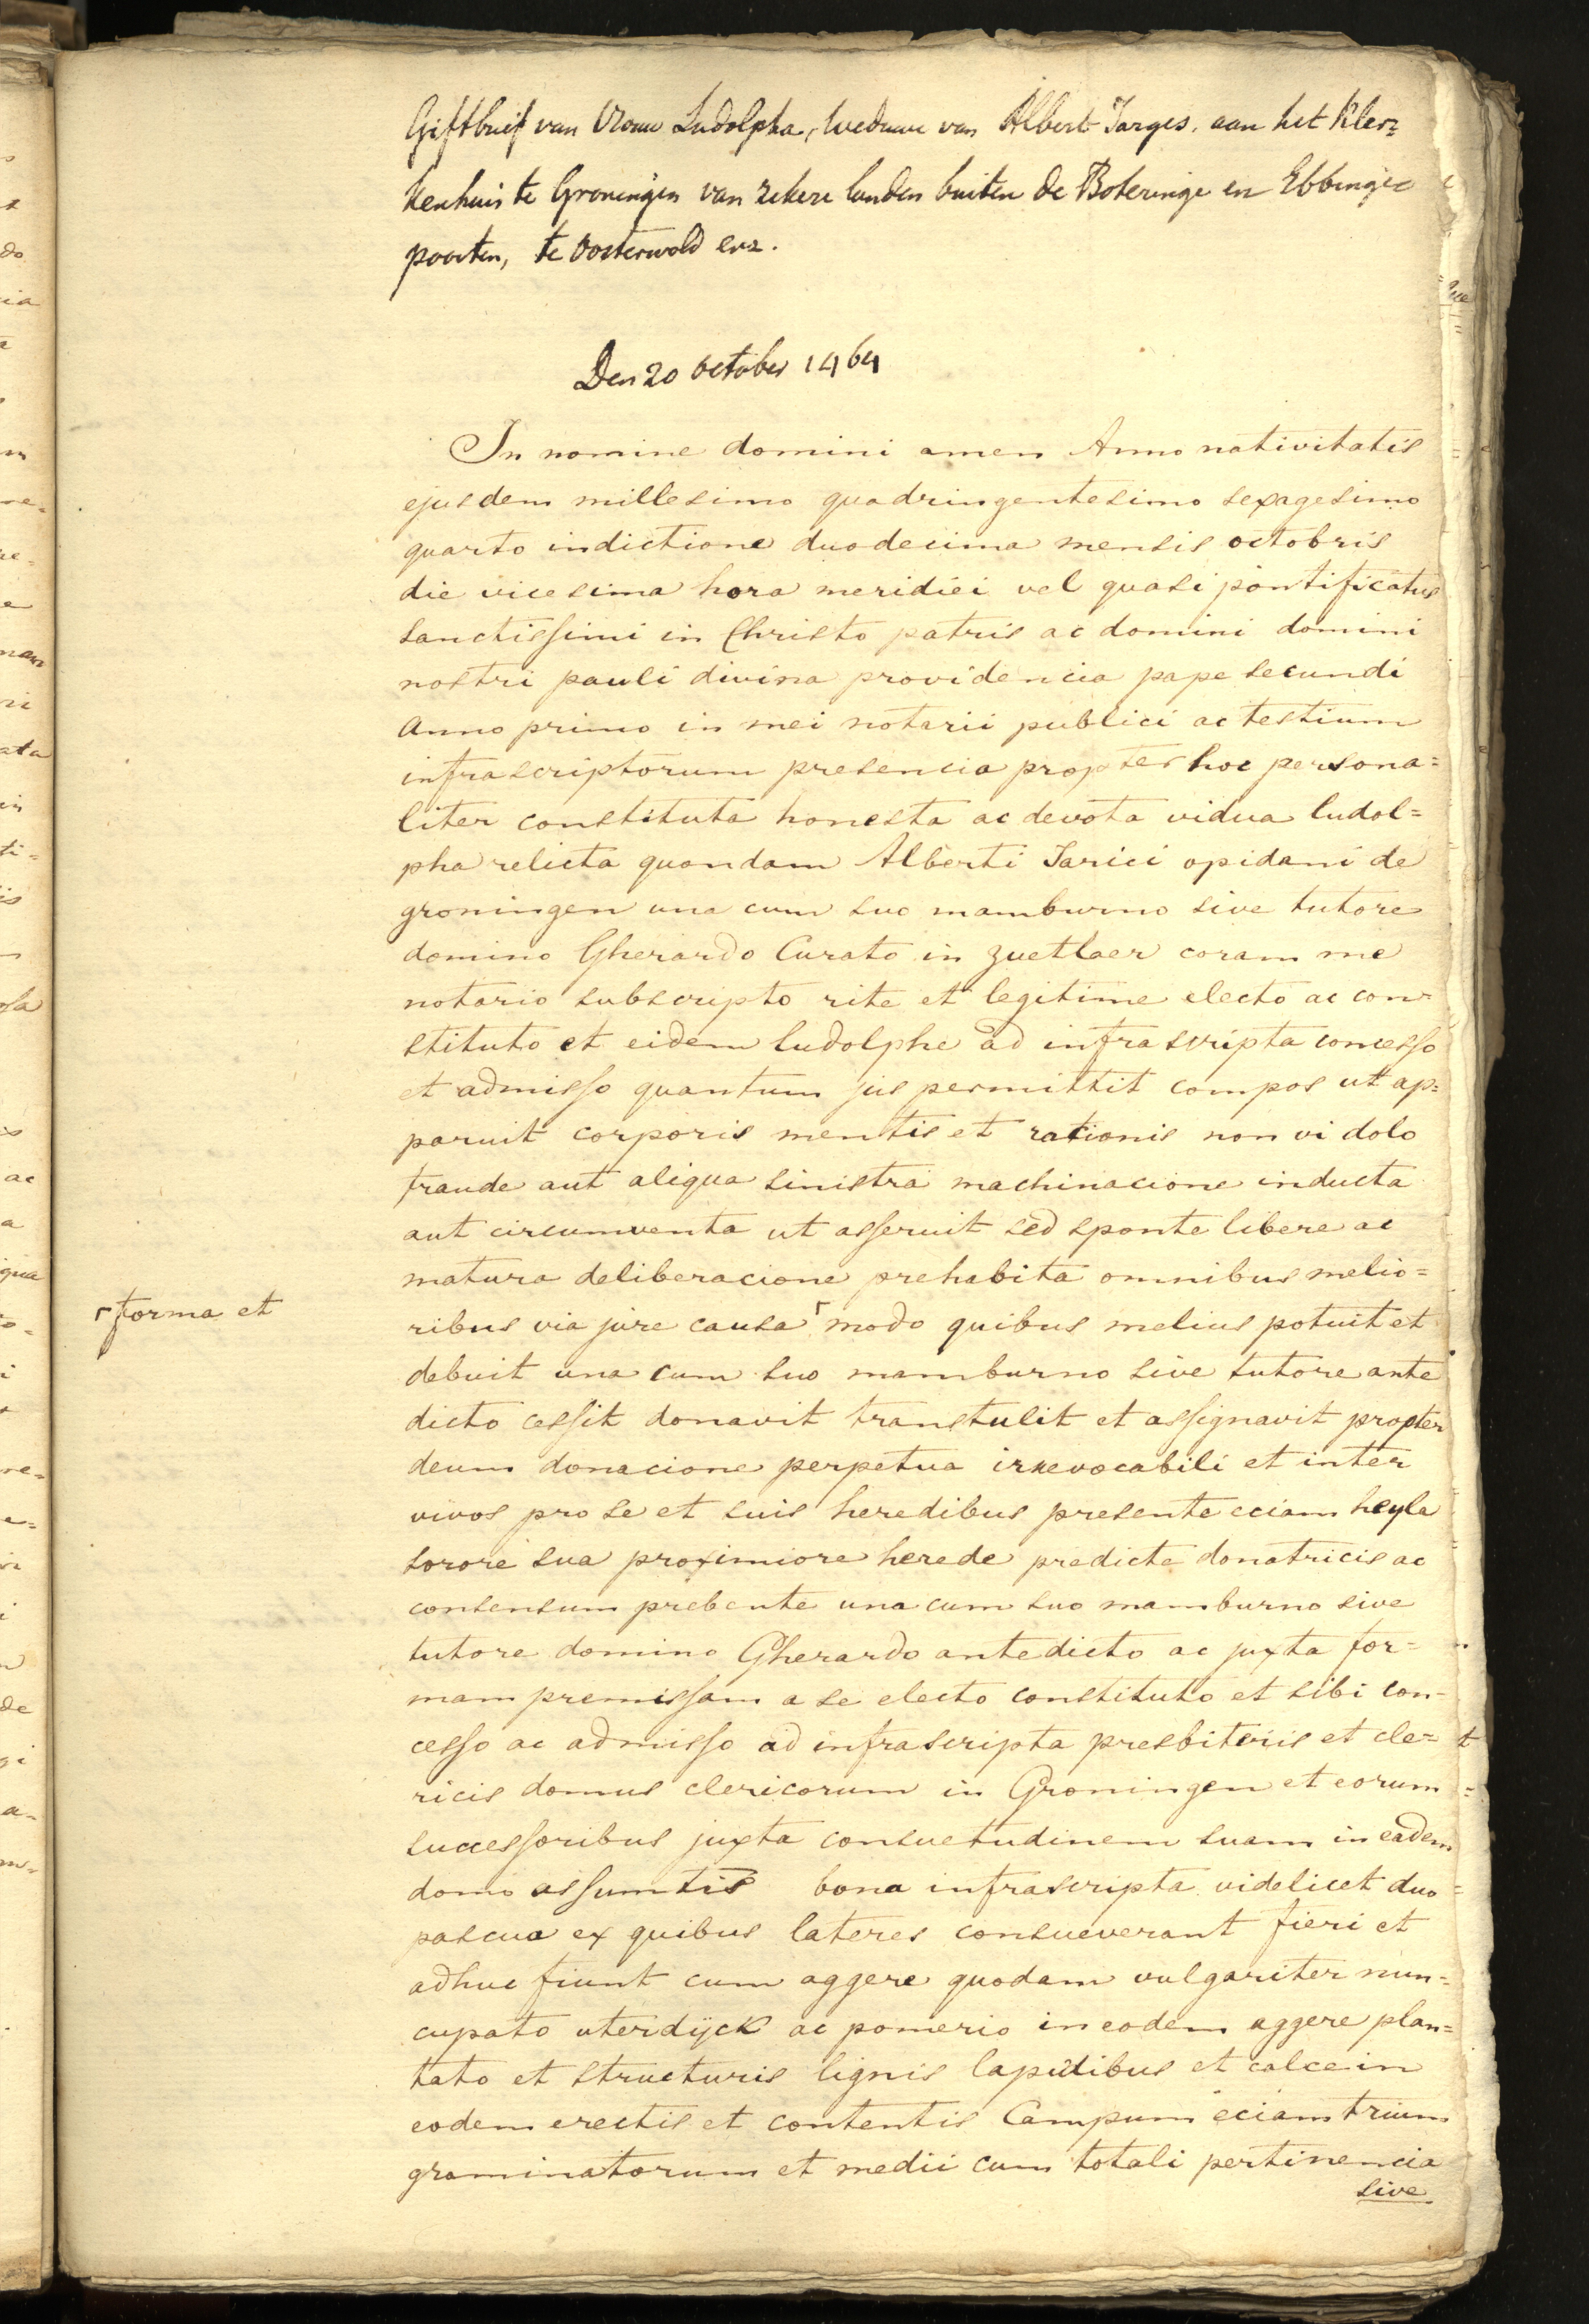 Giftbrief van Vrouw Ludolpha, weduwe van Albert Jarges, aan het Kler=
kenhuis te Groningen van zekere landen buiten de Boteringe en Ebbinge=
poorten, te Oosterwold enz.
Den 20 October 1464
In nomine domini amen Anno nativitatis
ejusdem millesimo quadringentesimo sexagesimo
quarto indictione duodecima mensis octobris
die vicesima hora meridiei vel quasi pontificatus
sanctissimi in Christo patris ac domini domini
nostri pauli divina providencia pape secundi
Anno primo in mei notarii publici ac testium
infrascriptorum presencia propter hoc persona=
liter constituta honesta ac devota vidua ludol=
pha relicta quondam Alberti Jarici opidani de
groningen una cum suo mamburno sive tutore
domino Gherardo Curato in zuetlaer coram me
notario subscripto rite et legitime electo ac con=
stituto et eidem ludolphe ad infrascripta concesso
et admisso quantum jus permittit compos ut ap=
paruit corporis mentis et rationis non vi dolo
fraude aut aliqua sinistra machinacione inducta
aut circumventa ut asseruit sed sponte libere ac
matura deliberacione prehabita omnibus melio=
ribus via jure causa ┌ modo quibus melius potuit et
┌ forma et
debuit una cum suo mamburno sive tutore ante
dicto cessit donavit transtulit et assignavit propter
deum donacione perpetua irrevocabili et inter
vivos pro se et suis heredibus presente eciam heyla
sorore sua proximiore herede predicte donatricis ac
consensum prebente una cum suo mamburno sive
tutore domino Gherardo antedicto ac juxta for=
mam premissam a se electo constituto et sibi con=
cesso ac admisso ad infrascripta presbiteris et cle=
ricis domus clericorum in Groningen et eorum
successoribus juxta consuetudinem suam in eadem
domo assumtis bona infrascripta videlicet duo
pascua ex quibus lateres consueverant fieri et
adhuc fiunt cum aggere quodam vulgariter nun=
cupato uterdijck ac pomerio in eodem aggere plan=
tato et structuris lignis lapidibus et calce in
eodem erectis et contentis Campum eciam trium
graminatorum et medii cum totali pertinencia
sive